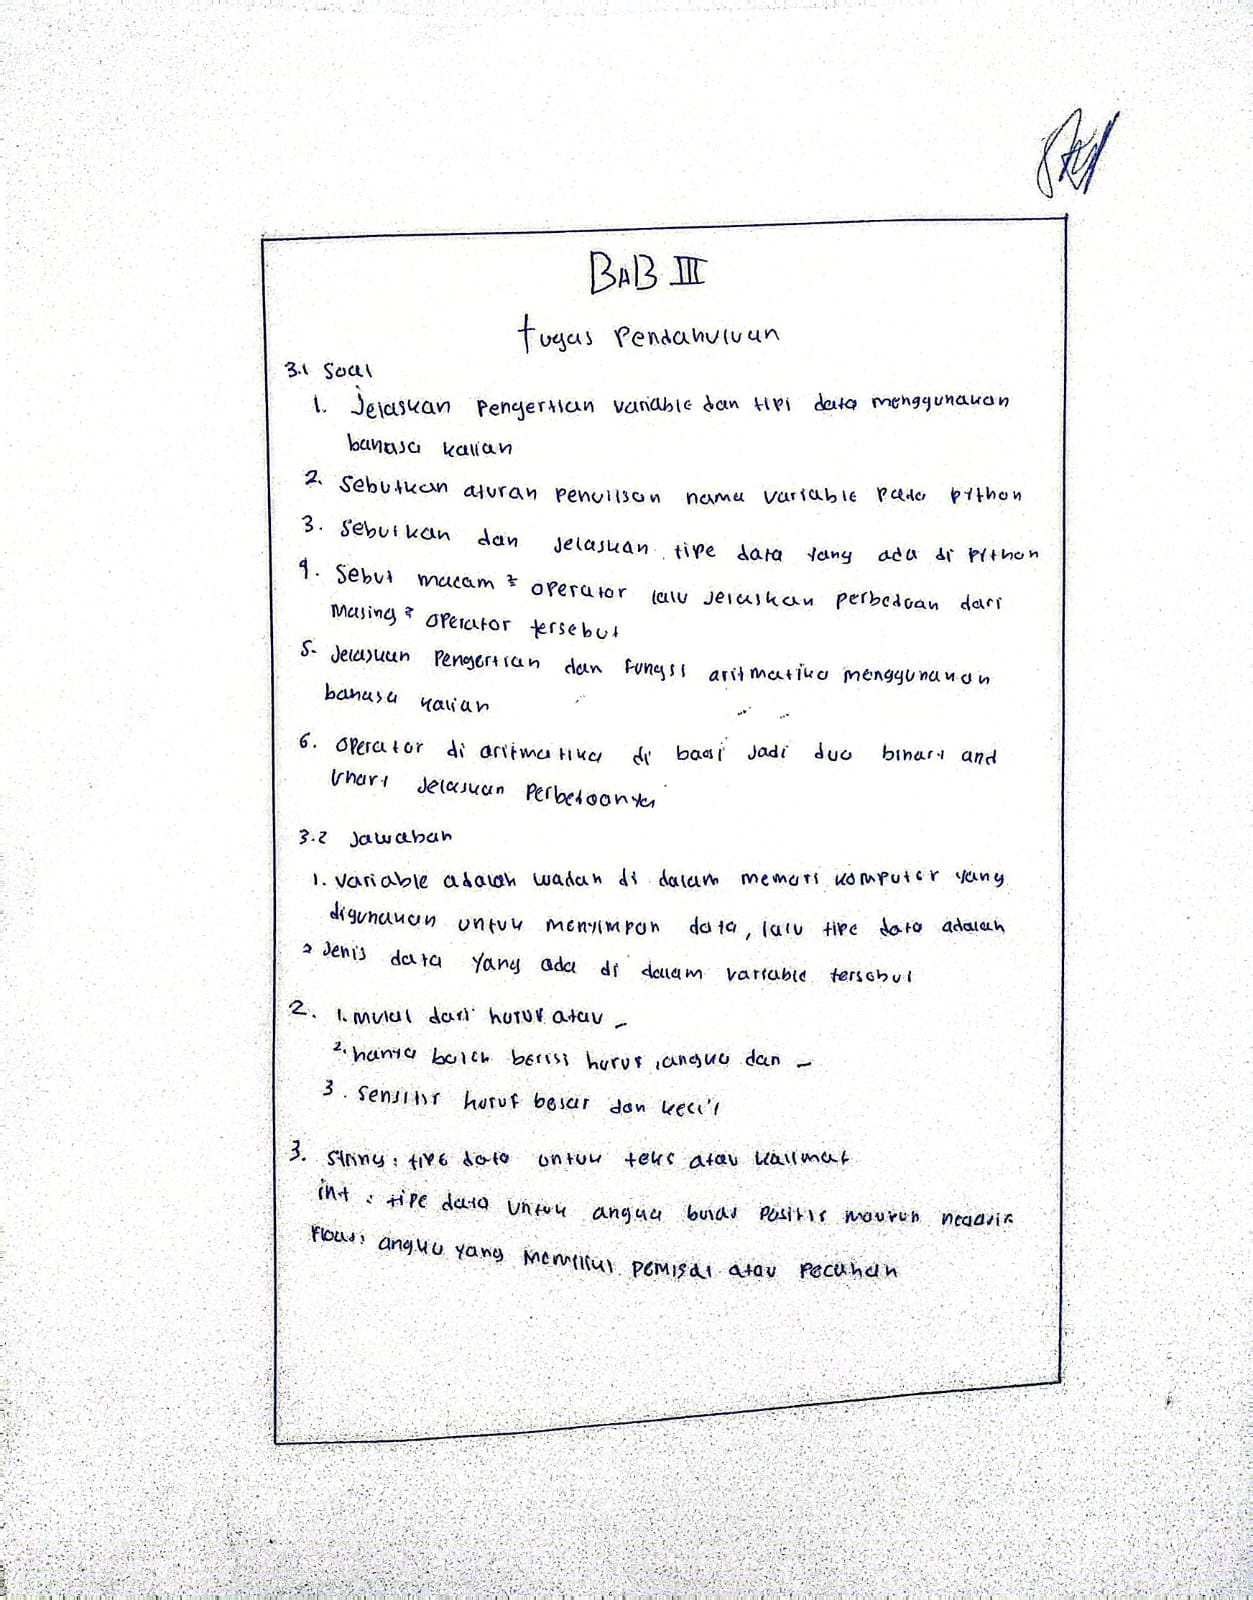 BAB III
Tugas Pendahuluan
3.1 Soal
1. Jelaskan Pengertian variable dan tipi data menggunakan
bahasa kalian
2. Sebutkan aturan penulisan nama variable pada python
3. Sebutkan dan jelaskan tipe data yang ada di Python
4. Sebut macam² operator lalu jelaskan perbedaan dari
Masing² operator tersebut
5. Jelaskan Pengertian dan fungsi aritmatika menggunakan
bahasa kalian
6. Operator di aritmatika di bagi jadi dua binary and
Unary Jelaskan Perbedaannya
3.2 Jawaban
1. Variable adalah wadah di dalam memori komputer yang
digunakan untuk menyimpan data, lalu tipe data adalah
Jenis data yang ada di dalam variable tersebut
2. 1. Mulai dari huruf atau _
2. hanya boleh berisi huruf, angka dan _
3. Sensitif huruf besar dan kecil
3. String: tipe data untuk teks atau kalimat
int : tipe data untuk angka bulat Positif maupun negatif
Float: angka yang memiliki pemisai atau Pecahan